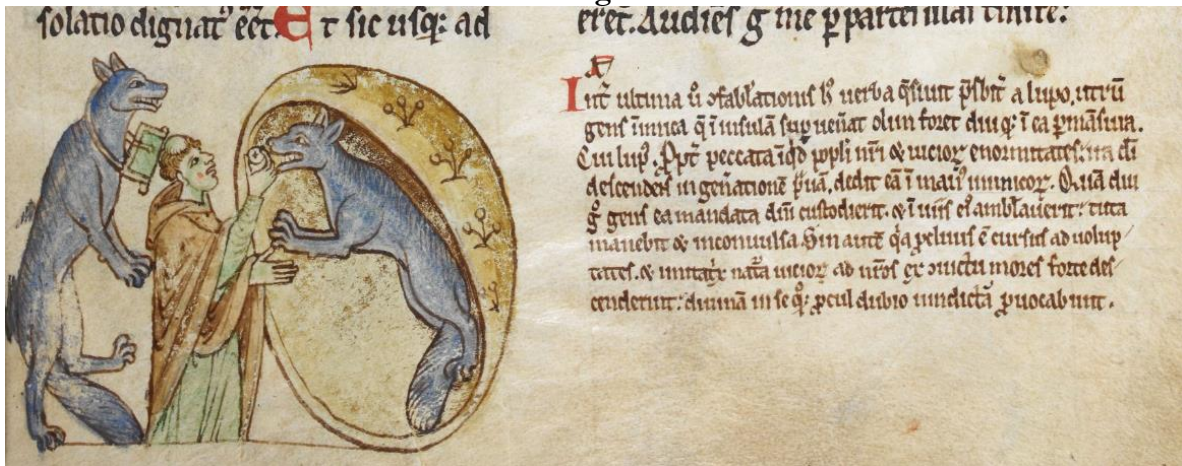 solatio dignat᷒ eet. Et sic usq; ad
eret. Audiēs g me ꝑ
Int̃ ultima ū ↄfablationis h̄ uerba q̄siuit p̄sbit̃ a lupo, utrū
gens inimica q̄ ī insulā suꝑ uen̄at olim foret diu q; ī ea ꝑmāsura.
Cui lup᷒. Ꝓpt̃ peccata īqd popli nr̄i & uicioꝝ enormitates: ira d̄i
descendens in gen̄ationē ꝓuā, dedit eā ī man᷒ inimicoꝝ. Quā diu
g̊ gens ea mandata dn̄i custodierit. & ī uiis ei᷒ amblauerit: tuta
manebit & inconuulsa. Sin autē q̇a ꝓcliuis ē cursus ad uolup
tates. & imitat̃x nat̃a uicioꝝ ad nr̄os ex ↄuictu mores forte des
cenderint: diuinā in se q; ꝓcul dubio uindictā ꝓuocabunt.